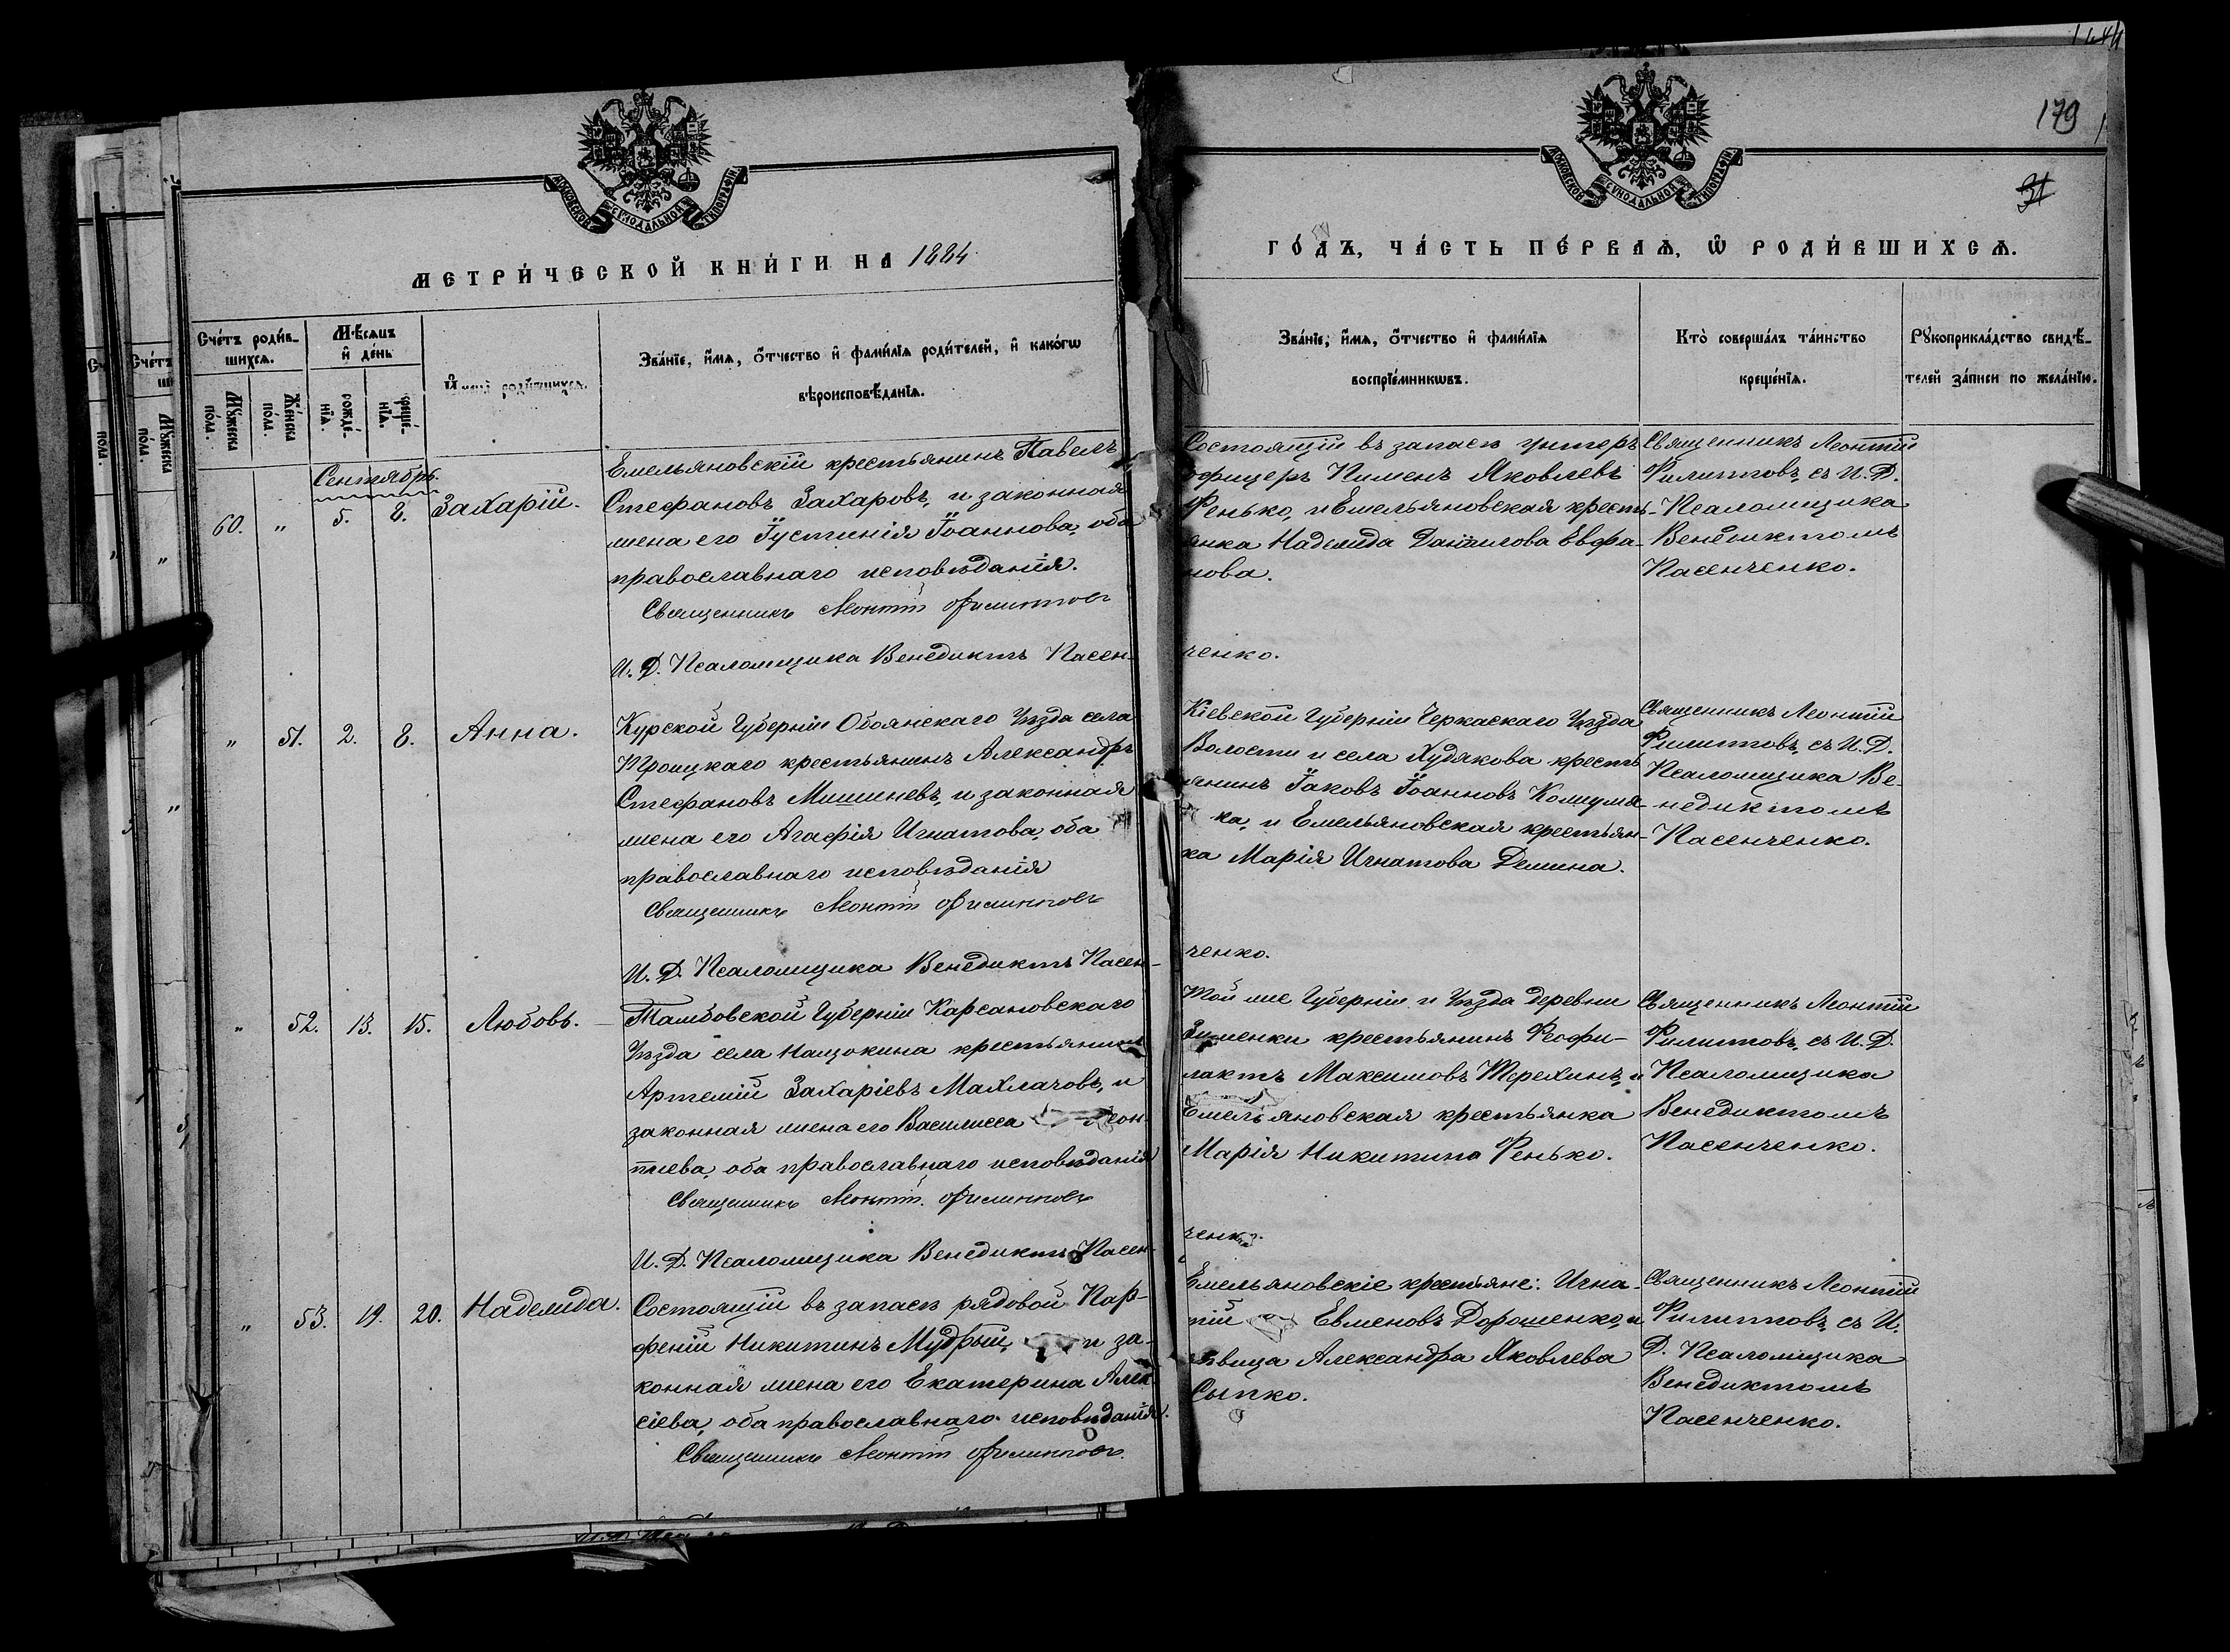 179
31
МОСКОВСКОЙ СѴНОДАЛЬНОЙ ТИПОГРАФІИ
МОСКОВСКОЙ СѴНОДАЛЬНОЙ ТИПОГРАФІИ
МЕТРИ́ЧЕСКОЙ КНИ́ГИ НА 1884
ГО́ДЪ, ЧА́СТЬ ПЕ́РВАѦ, Ѡ РОДИ́ВШИХСѦ.
Сче́тъ роди́в-
шихсѧ.
Мꙋ́жеска по́ла.
Же́нска по́ла.
Мѣ́сѧцъ
и̂ де́нь
рожде́-
нїѧ.
креще́-
нїѧ.
И̂мена̀ роди́вшихсѧ.
Зва́нїе, и̂́мѧ, о̂́тчество и̂ фами́лїѧ роди́телей, и̂ како́гѡ
вѣроисповѣ́данїѧ.
Зва́нїе, и̂́мѧ, о̂́тчество и̂ фами́лїѧ
воспрїе́мникѡвъ.
Кто̀ соверша́лъ та́инство
креще́нїѧ.
Рꙋкоприкла́дство свидѣ́-
телей за́писи по жела́нїю.
Сентябрь.
60. " 5. 8. Захарій.
Емельяновскій крестьянинъ Павелъ
Стефановъ Захаровъ, и законная
жена его Іустинія Іоаннова, оба
православнаго исповѣданія.
Священникъ Леонтій Филипповъ
И. Д. Псаломщика Венедиктъ Пасен-
ченко.
Состоящій въ запасѣ унтеръ
офицеръ Пименъ Яковлевъ
Фенько, и Емельяновская кресть-
янка Надежда Даніилова Евфа-
нова.
Священникъ Леонтій
Филипповъ, съ И. Д.
Псаломщика
Венедиктомъ
Пасенченко.
" 51. 2. 8. Анна.
Курской Губерніи Обоянскаго Уѣзда села
Троицкаго крестьянинъ Александръ
Стефановъ Мишневъ, и законная
жена его Агафія Игнатова, оба
православнаго исповѣданія
Священникъ Леонтій Филипповъ
И. Д. Псаломщика Венедиктъ Пасен-
ченко.
Кіевской Губерніи Черкаскаго Уѣзда
Волости и села Худякова кресть
янинъ Іаковъ Іоанновъ
ка, и Емельяновская крестьян-
ка Марія Игнатова Демина.
Священникъ Леонтій
Филипповъ, съ И. Д.
Псаломщика Ве-
недиктомъ
Пасенченко.
" 52. 13. 15. Любовь.
Тамбовской Губерніи Карсановскаго
Уѣзда села Нащокина крестьянинъ
Артемій Захаріевъ Махлачовъ, и
законная жена его Василисса Леон-
тіева, оба православнаго исповѣданія
Священникъ Леонтій Филипповъ
И. Д. Псаломщика Венедиктъ Пасен-
ченко.
Той же Губерніи и Уѣзда деревни
крестьянинъ Феофи-
лактъ Максимовъ Терехинъ, и
Емельяновская крестьянка
Марія Никитина Фенько.
Священникъ Леонтій
Филипповъ, съ И. Д.
Псаломщика
Венедиктомъ
Пасенченко.
" 53. 19. 20. Надежда.
Состоящій въ запасѣ рядовой Пар-
феній Никитинъ Мудрый, и за-
конная жена его Екатерина Алек
сіева, оба православнаго исповѣданія.
Священникъ Леонтій Филипповъ.
Емельяновскіе крестьяне: Игна-
тій Евменовъ Дорошенко, и
дѣвица Александра Яковлева
Сыпко.
Священникъ Леонтій
Филипповъ, съ И.
Д. Псаломщика
Венедиктомъ
Пасенченко.